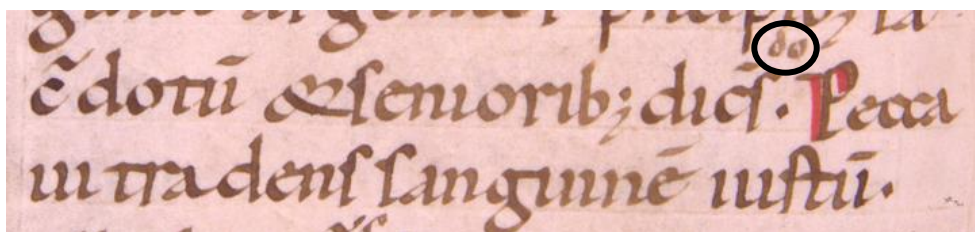 do
c̄dotū &seniorib; dic̄s· Pecca
ui tradens sanguinē iustū·